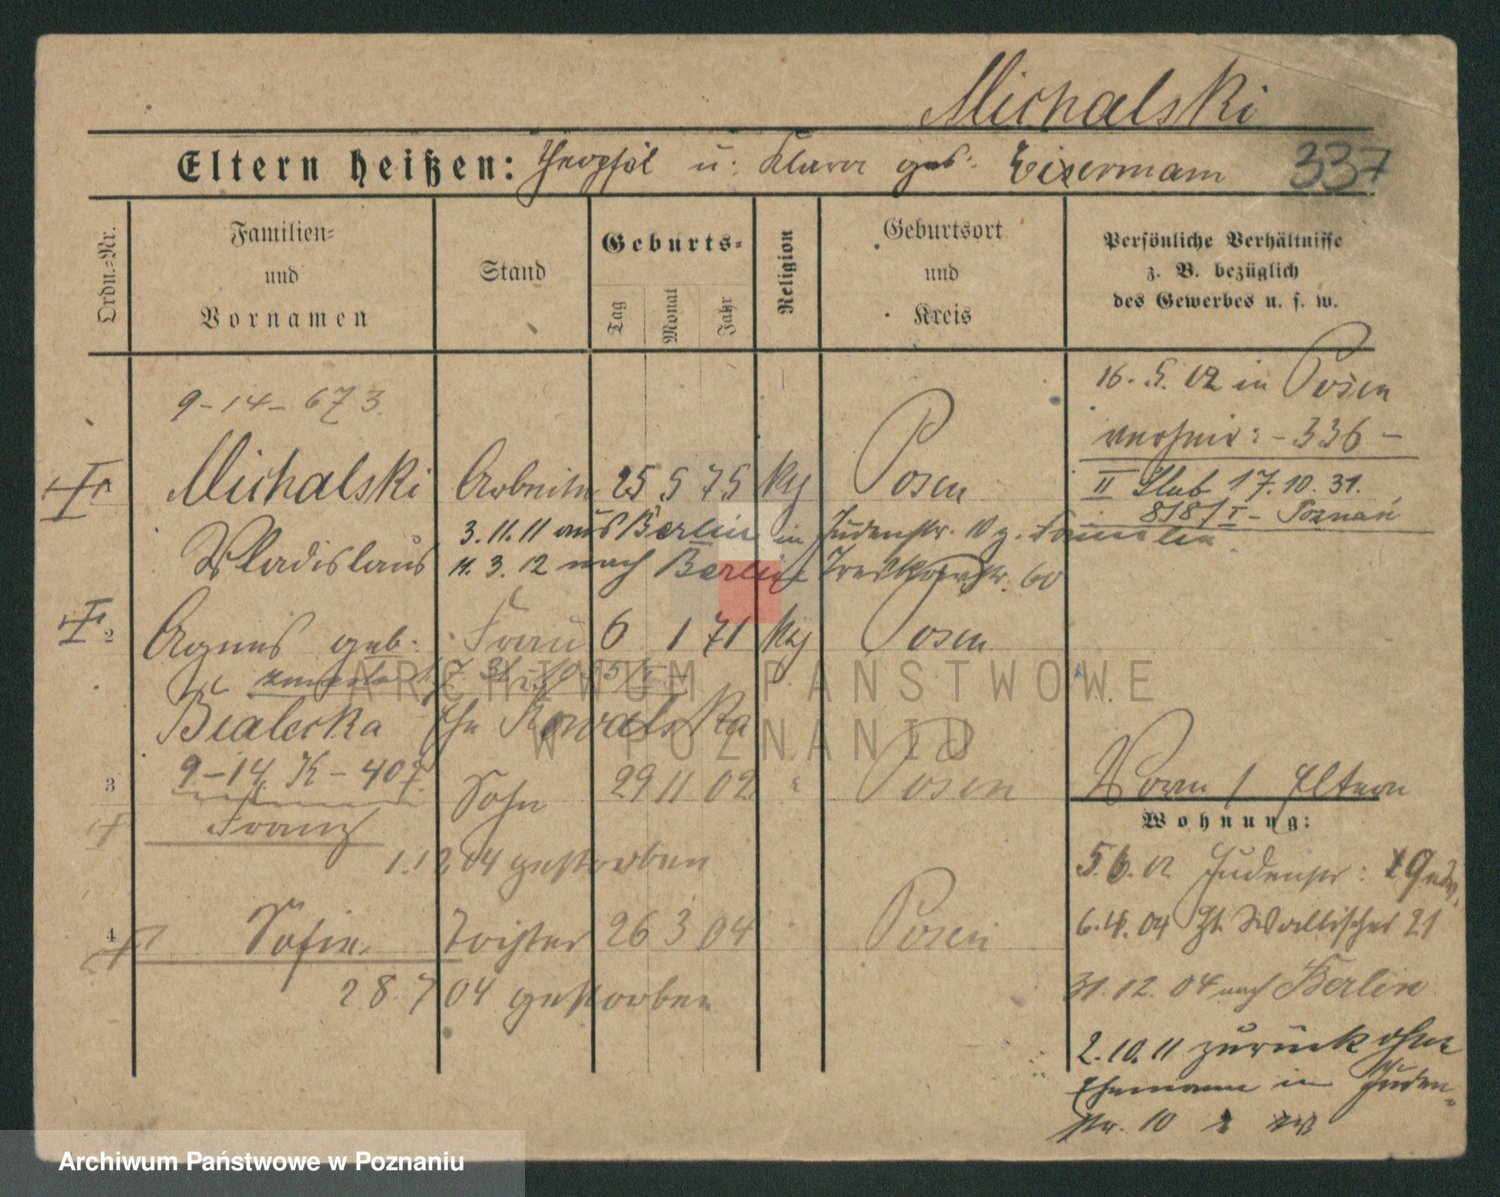 Michalski
Eltern heißen: Theophil u: Klara geb: Eisermann 337
Ordn.-Nr.
Familien-
und
Vornamen
Stand
Geburts-
Tag Monat Jahr
Religion
Geburtsort
und
Kreis
Persönliche Verhältnisse
z. B. bezüglich
des Gewerbes u. s. w.
9-14-673
16.5.02 in Posen
verheir: -336-
Michalski Arbeiter 25 5 75 kg Posen
II Slub 17.10.31.
8181/I - Poznań
Wladislaus 3.11.11 aus Berlin in Judenstr. 10 z. Familie
11.3.12 nach Berlin 60
2 Agnes geb: Frau 6 1 71 kg Posen
Bialecka Kowalska
9-14 K-407
3 Franz Sohn 29 11 02 " Posen
1.12.04 gestorben
Vorm / Eltern
Wohnung:
5.6.02 Judenstr:
4 Sofie Tochter 26 3 04 Posen
6.4.04 Wallischei 21
28.7 04 gestorben
31.12.04 nach Berlin
2.10.11 zurück ohne
Ehemann in Juden-
str. 10
ARCHIWUM PAŃSTWOWE
W POZNANIU
Archiwum Państwowe w Poznaniu